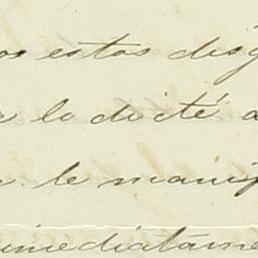 os estos disg
lo dicté a
le manif
inmediatame